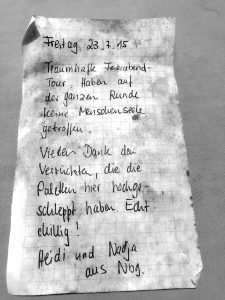 Freitag, 23.7.15
Traumhafte Feierabend-
Tour. Haben auf
der ganzen Runde
keine Menschenseele
getroffen.
Vielen Dank den
Verrückten, die die
Paletten hier hochge-
schleppt haben. Echt
chillig!
Heidi und Nadja
aus Nbg.